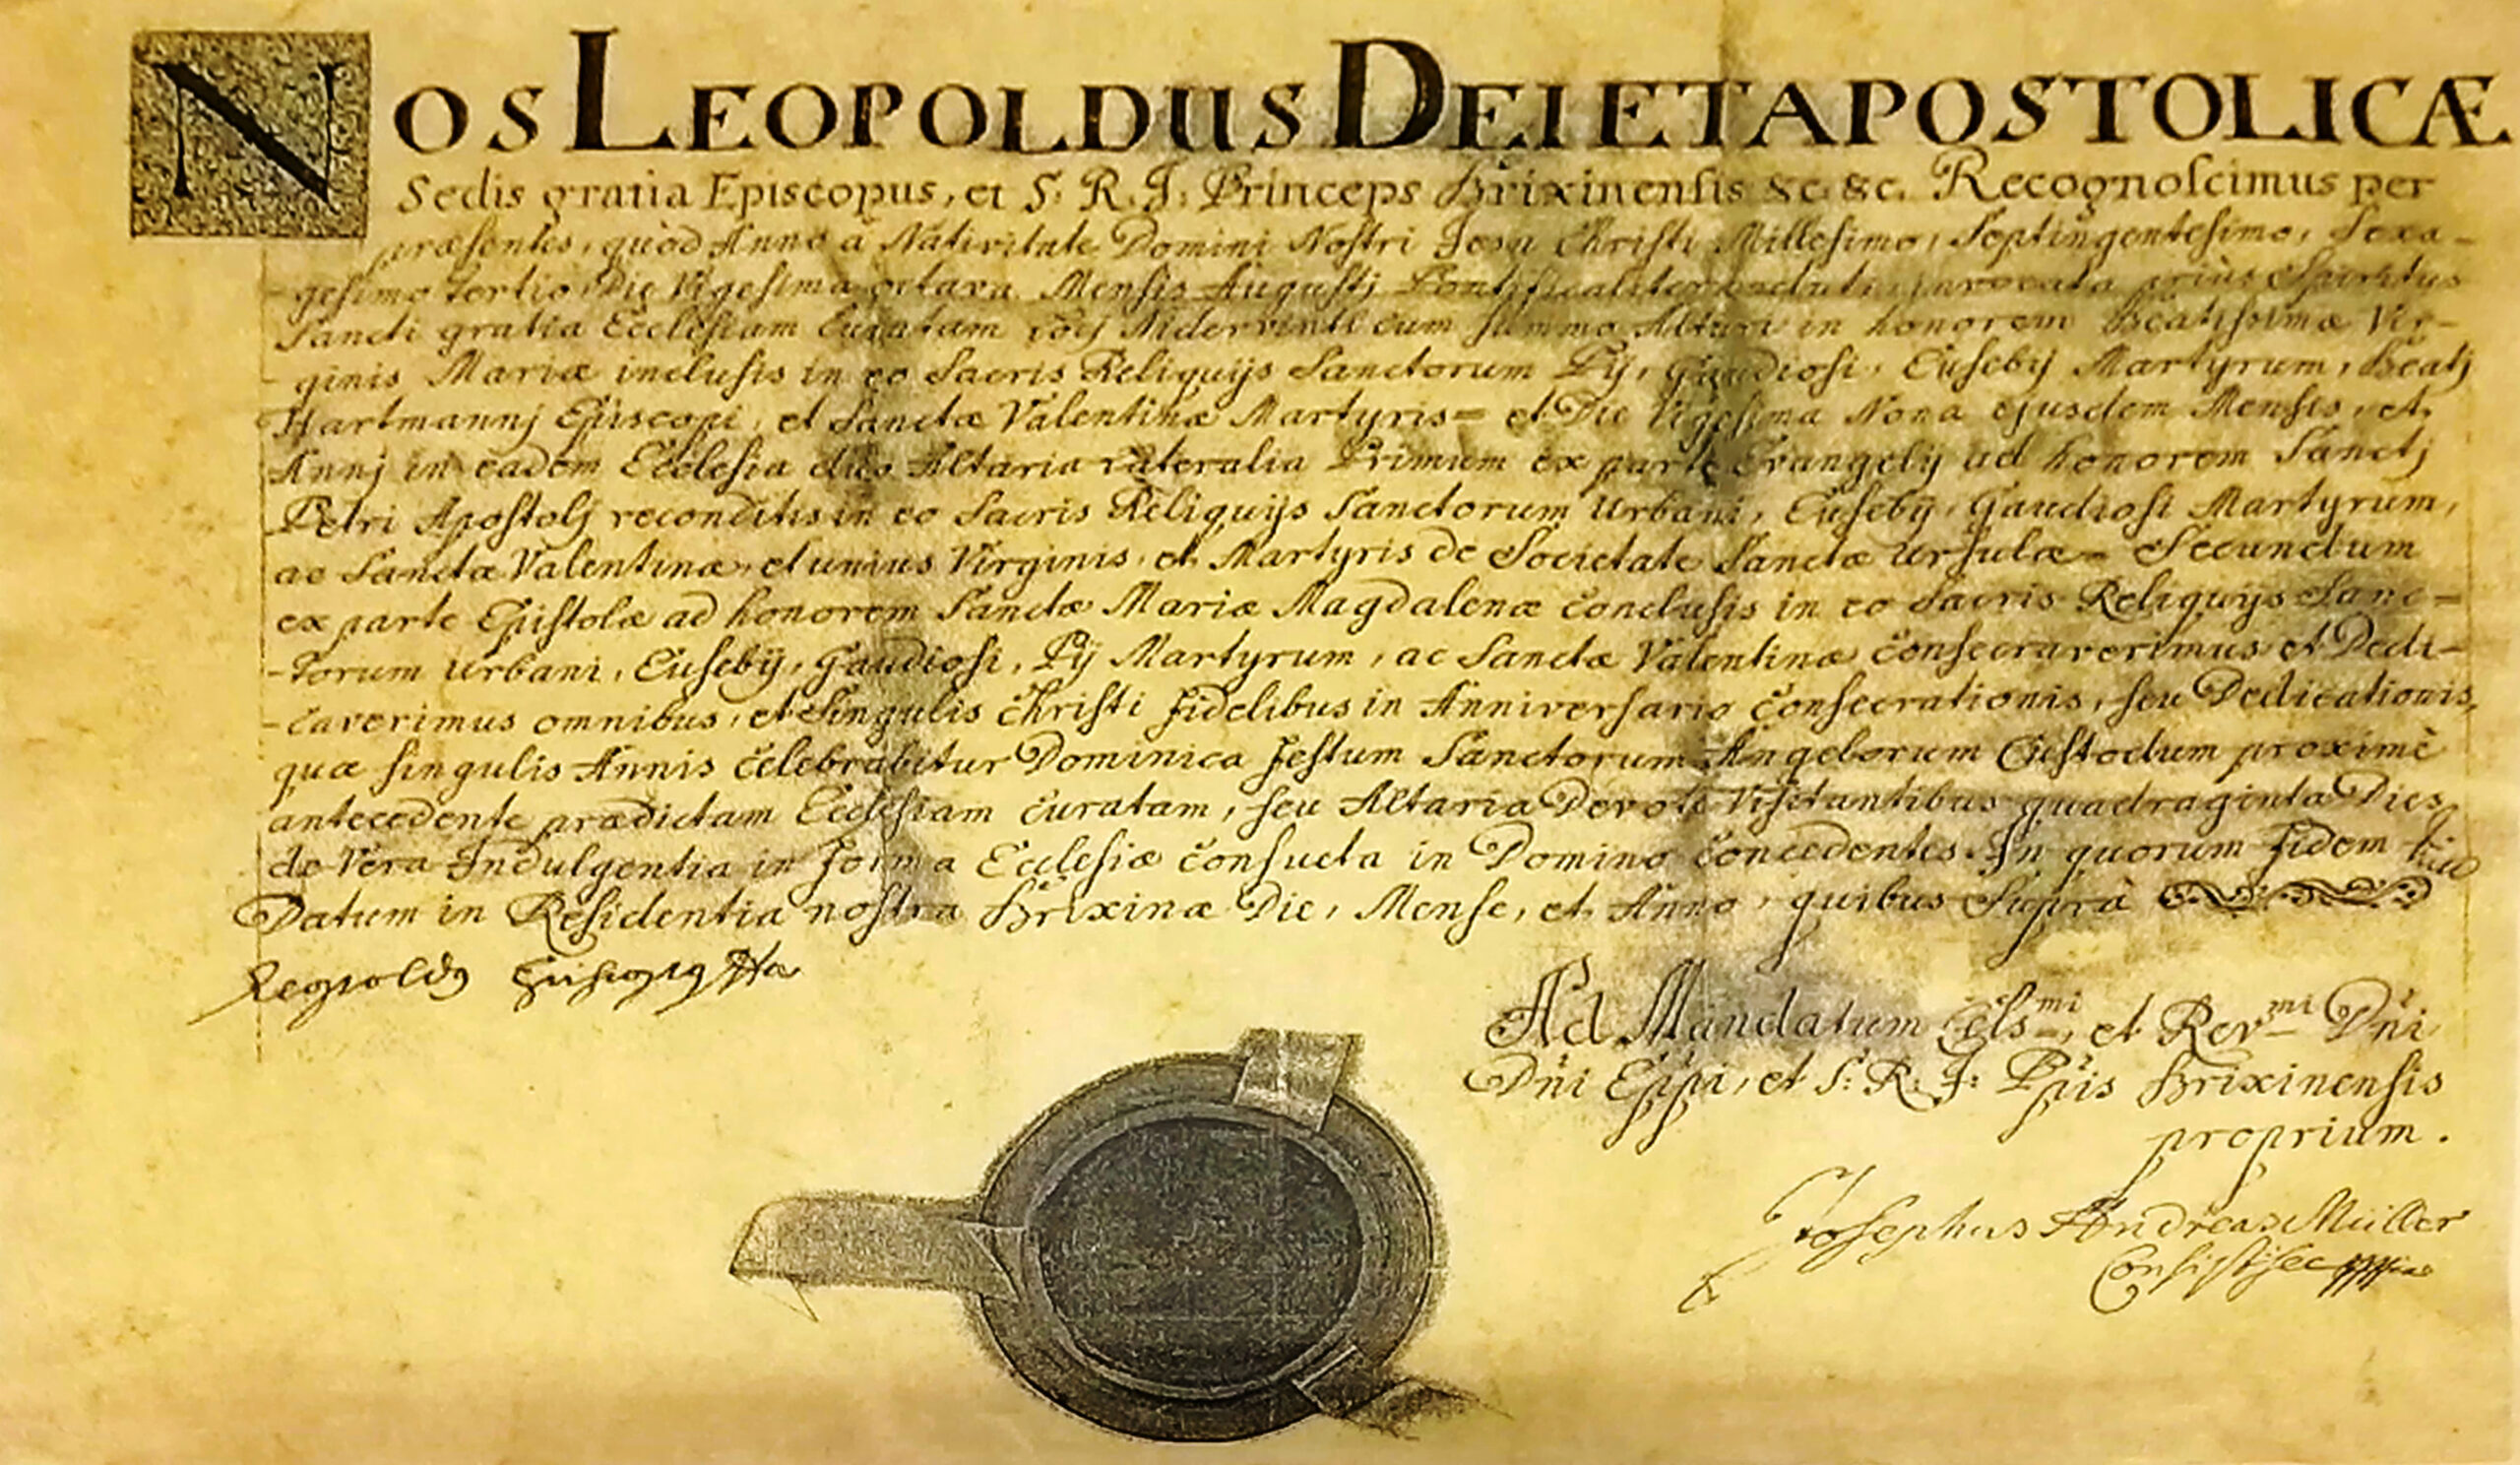 NOS LEOPOLDUS DEI ET APOSTOLICÆ
Sedis gratia Episcopus, et S. R. I. Princeps Brixinensis &c. &c. Recognoscimus per
præsentes, quòd Anno à Nativitate Domini Nostri Jesu Christi Millesimo, Septingentesimo, Sexa-
-gesimo tertio, Die Vigesima octava Mensis Augustj Pontificaliter induti, invocata prius Spiritus
Sancti gratia Ecclesiam Curatam locj Nidervintl cum summo Altari in honorem Beatissimæ Vir-
-ginis Mariæ inclusis in eo Sacris Reliquijs Sanctorum Pij, Gaudiosi, Eusebij Martyrum, Beatj
Hartmannj Episcopi, et Sanctæ Valentinæ Martyris = et Die Vigesima Nona ejusdem Mensis, et
Annj in eadem Ecclesia duo Altaria lateralia Primum ex parte Evangelij ad honorem Sanctj
Petri Apostolj reconditis in eo Sacris Reliquijs Sanctorum Urbani, Eusebij, Gaudiosi Martyrum,
ac Sanctæ Valentinæ, et unius Virginis, et Martyris de Societate Sanctæ Ursulæ = Secundum
ex parte Epistolæ ad honorem Sanctæ Mariæ Magdalenæ conclusis in eo Sacris Reliquijs Sanc=
-torum Urbani, Eusebij, Gaudiosi, Pij Martyrum, ac Sanctæ Valentinæ consecraverimus et Dedi-
-caverimus omnibus, et Singulis Christi fidelibus in Anniversario Consecrationis, seu Dedicationis,
quæ singulis Annis celebrabitur Dominica festum Sanctorum Angelorum Custodum proximè
antecedente prædictam Ecclesiam curatam, seu Altaria Devote Visitantibus quadraginta Dies
de Vera Indulgentia in forma Ecclesiæ consueta in Domino concedentes. In quorum fidem
Datum in Residentia nostra Brixinæ Die, Mense, et Anno, quibus Suprà
Leopoldus Episcopus
Ad Mandatum Cels:mi, et Rev:mi Dñi
Dñi Eppi, et S: R: I: Ppis Brixinensis
proprium.
Josephus Andreas Müller